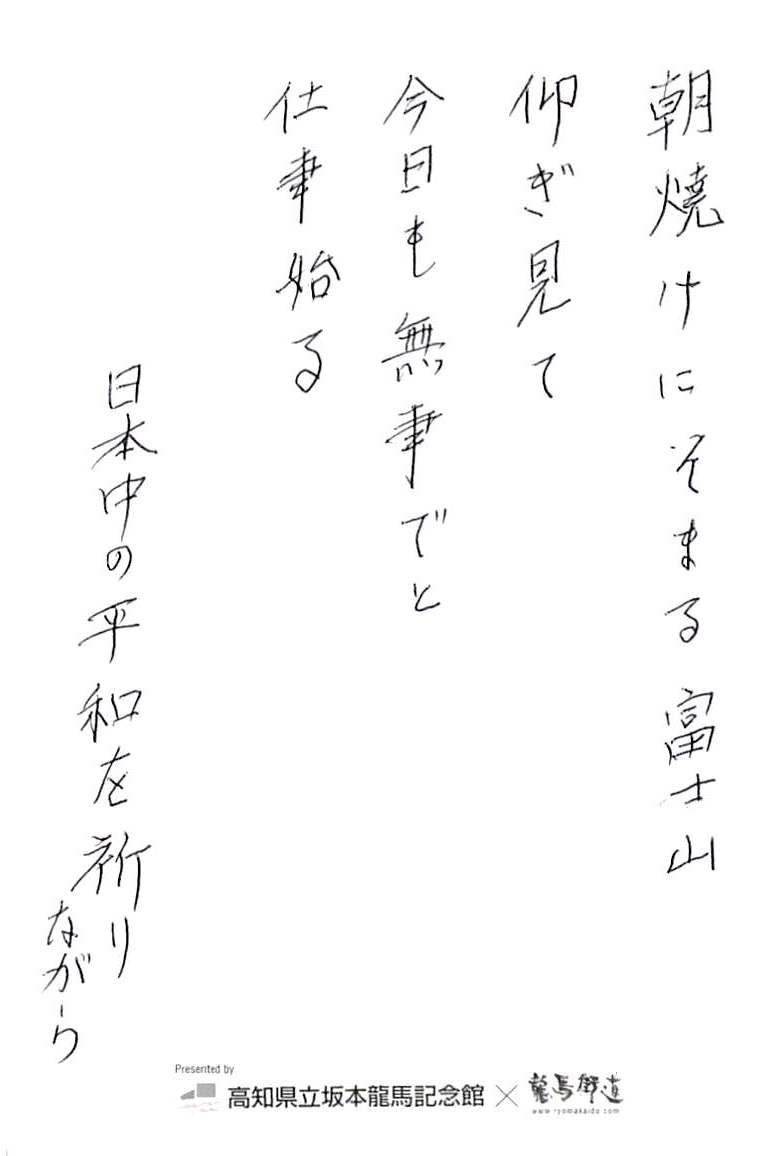 朝焼けにそまる富士山
仰ぎ見て
今日も無事でと
仕事始る
日本中の平和を祈り
ながら
Presented by
高知県立坂本龍馬記念館×龍馬街道
www.ryomakaido.com